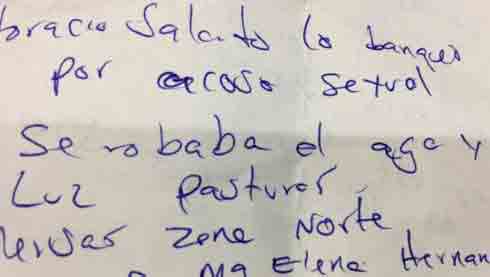 oracio Salcito lo banquer
por acoso Sexual
Se robaba el aga y
Luz Pasturar
versar zona Norte
Ma Elena Hernan